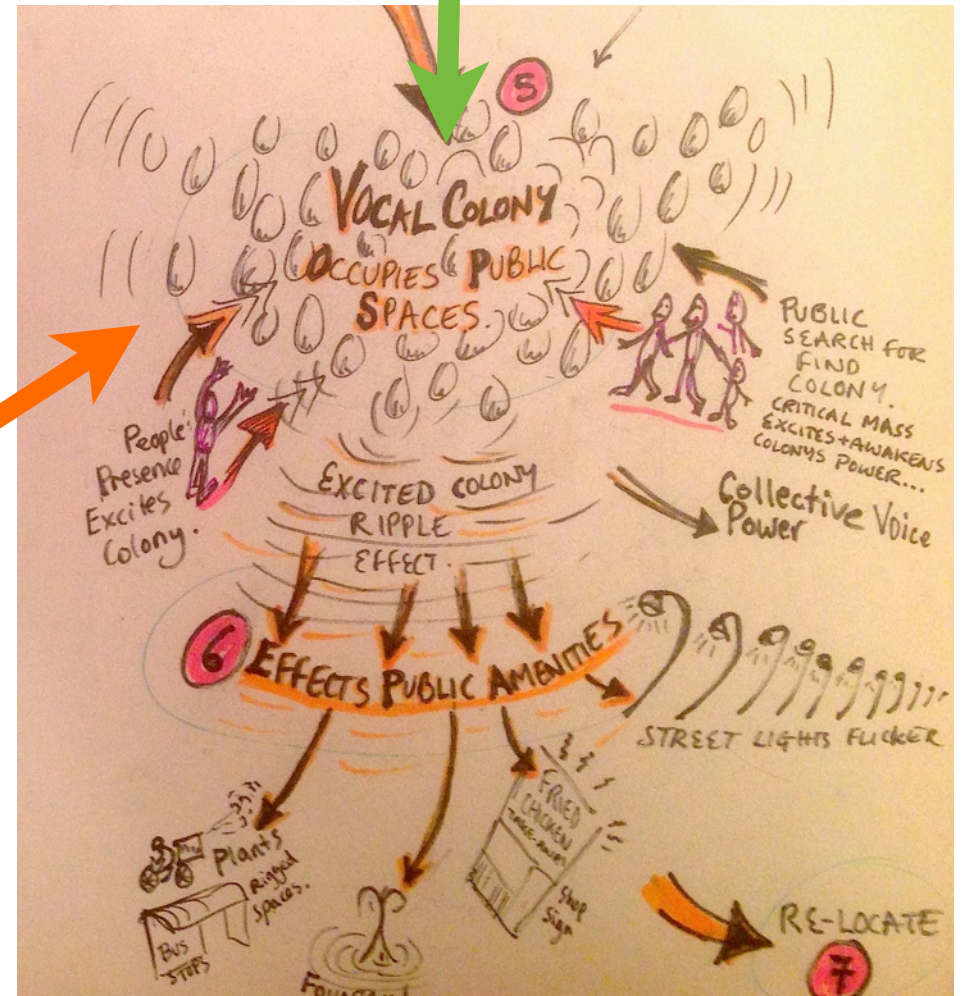 5
VOCAL COLONY
OCCUPIES PUBLIC
SPACES.
PUBLIC
SEARCH FOR
FIND
COLONY.
CRITICAL MASS
EXCITES + AWAKENS
COLONYS POWER...
People's
Presence
Excites
Colony.
EXCITED COLONY
RIPPLE
EFFECT.
Collective Voice
Power
6
EFFECTS PUBLIC AMENITIES
STREET LIGHTS FLICKER
FRIED
CHICKEN
TAKE-AWAY
Shop
Sign
Plants
Rigged
Spaces.
BUS
STOPS
RE-LOCATE
7